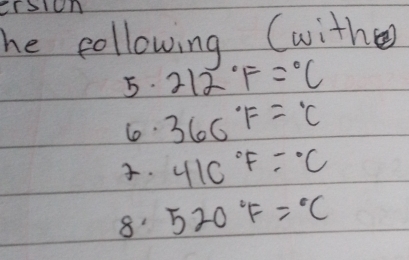 ersion
he following (with
5. 212°F = °C
6. 366°F = °C
7. 410°F = °C
8. 520°F = °C